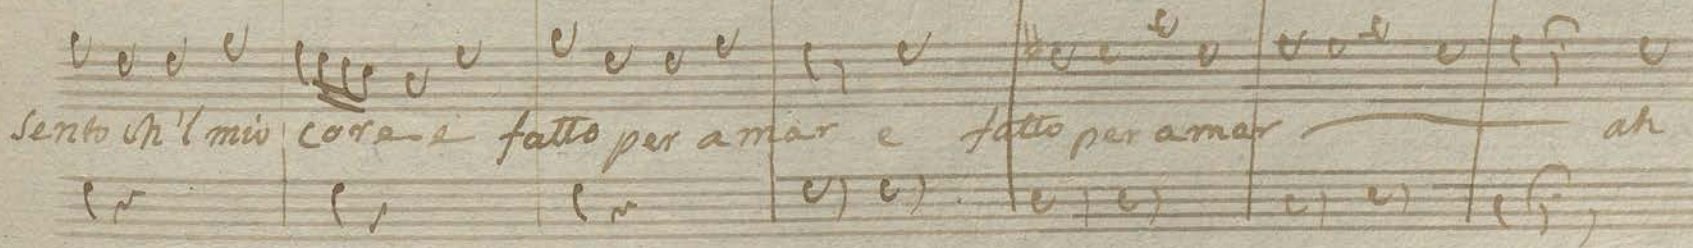 sento ch'l mio core e fatto per amar e fatto per amar ah